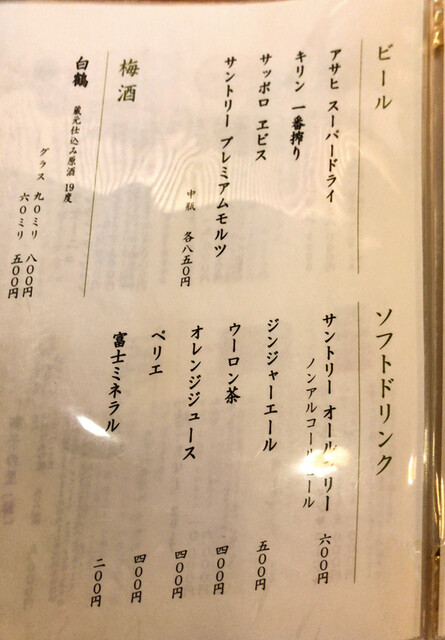 ビール
アサヒ スーパードライ
キリン 一番搾り
サッポロ ヱビス
サントリー プレミアムモルツ
中瓶 各八五〇円
梅酒
白鶴 蔵元仕込み原酒 19度
グラス 九〇ミリ 八〇〇円
六〇ミリ 五〇〇円
ソフトドリンク
サントリー オールフリー 六〇〇円
ノンアルコールビール
ジンジャーエール 五〇〇円
ウーロン茶 四〇〇円
オレンジジュース 四〇〇円
ペリエ 四〇〇円
富士ミネラル 二〇〇円